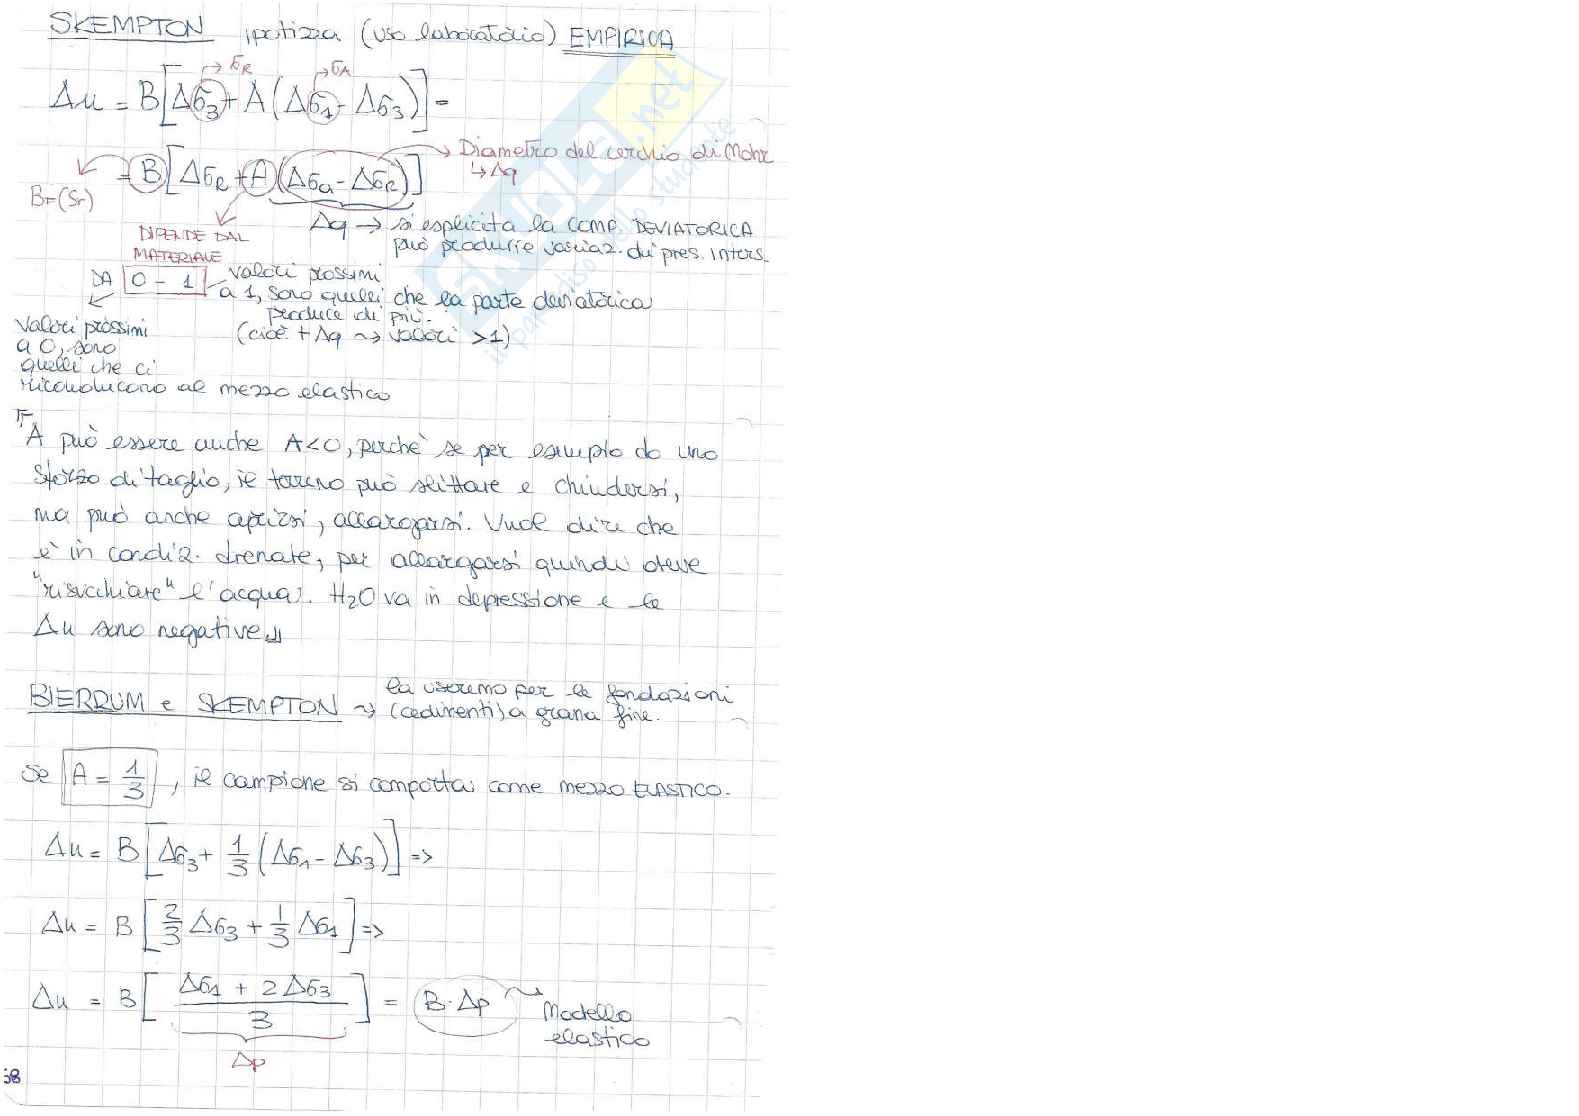 SKEMPTON ipotizza (uso laboratorio) EMPIRICA
→ σR →σA
Δu = B[Δσ3 + A(Δσ1 - Δσ3)] =
= B[ΔσR + A(Δσa - ΔσR)] → Diametro del cerchio di Mohr
↳Δq
B=(Sr)
Δq → si esplicita la comp. DEVIATORICA
può produrre variaz. di pres. inters.
DIPENDE DAL
MATERIALE
DA 0 - 1 valori prossimi
a 1, sono quelli che la parte deviatorica
produce di più.
(cioè +Δq ⇝ valori >1)
valori prossimi
a 0, sono
quelli che ci
riconducono al mezzo elastico
A può essere anche A<0, perché se per esempio do uno
sforzo di taglio, il terreno può slittare e chiudersi,
ma può anche aprirsi, allargarsi. Vuol dire che
è in condiz. drenate, per allargarsi quindi deve
"risucchiare" l'acqua. H2O va in depressione e le
Δu sono negative
BIERRUM e SKEMPTON ⇝ la useremo per le fondazioni
(cedimenti) a grana fine.
Se A = 1/3, il campione si comporta come mezzo ELASTICO.
Δu = B[Δσ3 + 1/3 (Δσ1 - Δσ3)] =>
Δu = B[2/3 Δσ3 + 1/3 Δσ1] =>
Δu = B[(Δσ1 + 2Δσ3)/3] = B·Δp ⇝ Modello
elastico
Δp
58
SKUOLA.net
il paradiso dello studente